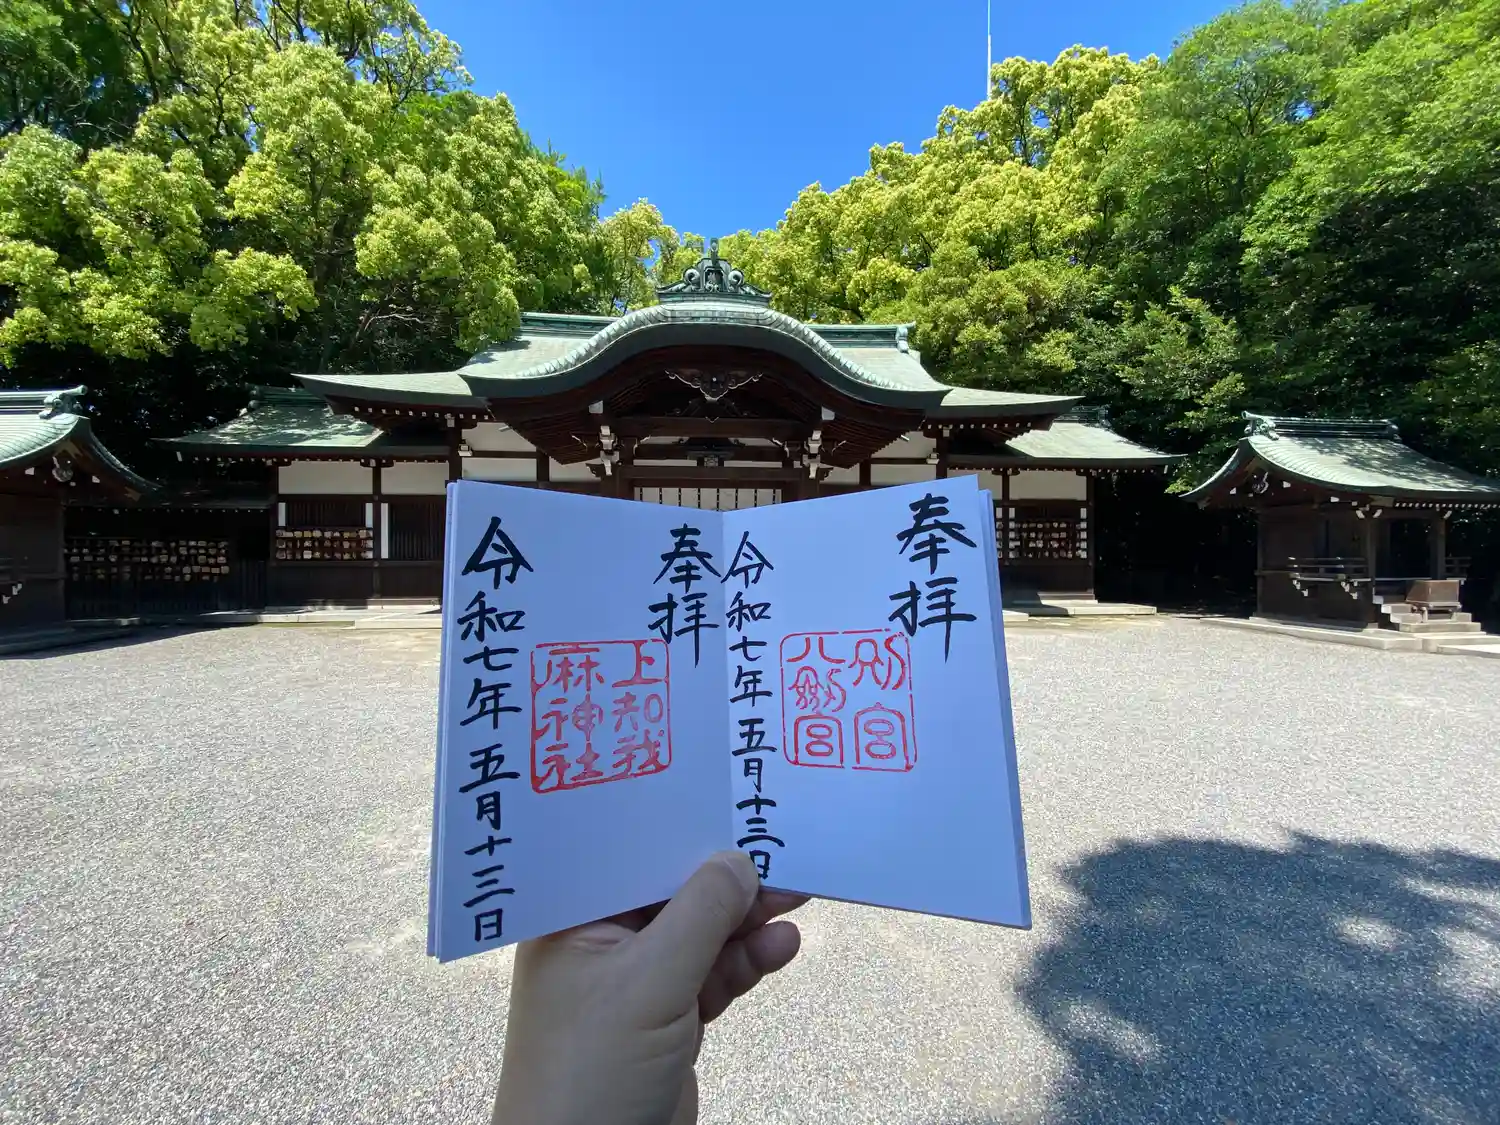 奉拝
別宮
八剣宮
令和七年五月十三日
奉拝
上知我
麻神社
令和七年五月十三日